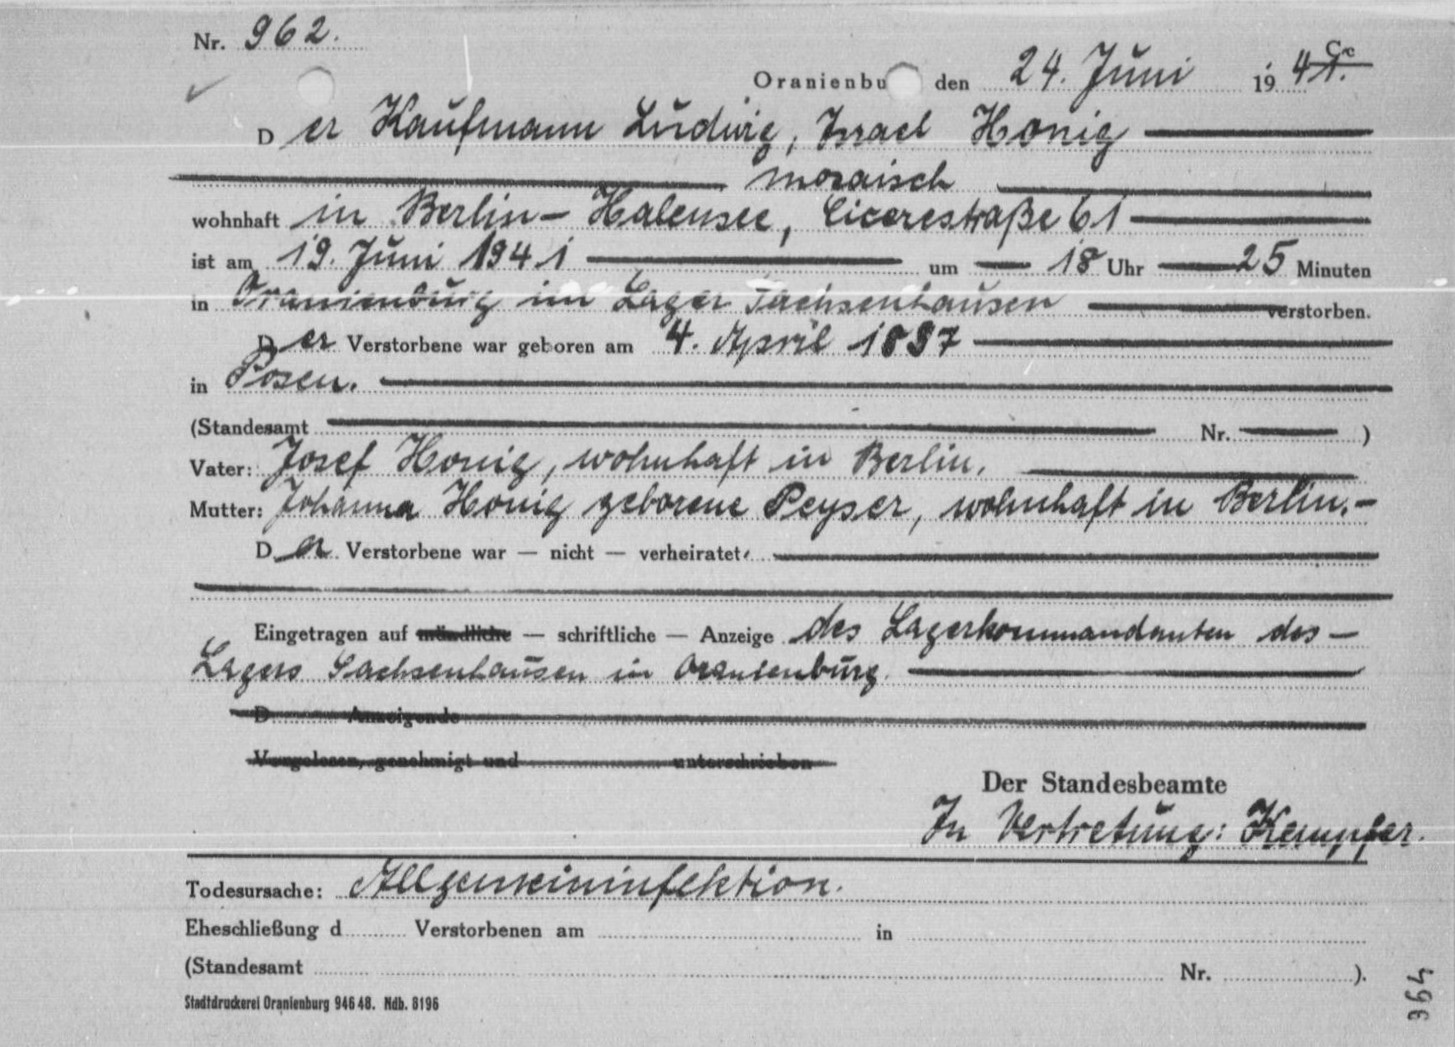 Nr. 962.
Oranienbu den 24. Juni 1941.
Der Kaufmann Ludwig, Israel Honig
mosaisch
wohnhaft in Berlin-Halensee, Cicerostraße 61
ist am 19. Juni 1941 um 18 Uhr 25 Minuten
in Oranienburg im Lager Sachsenhausen verstorben.
Der Verstorbene war geboren am 4. April 1897
in Posen.
(Standesamt Nr. )
Vater: Josef Honig, wohnhaft in Berlin.
Mutter: Johanna Honig geborene Peyser, wohnhaft in Berlin.-
Der Verstorbene war — nicht — verheiratet.
Eingetragen auf mündliche — schriftliche — Anzeige des Lagerkommandanten des
Lagers Sachsenhausen in Oranienburg.
D Anzeigende
Vorgelesen, genehmigt und unterschrieben
Der Standesbeamte
In Vertretung: Kempfer.
Todesursache: Allgemeininfektion.
Eheschließung d Verstorbenen am in
(Standesamt Nr. ).
Stadtdruckerei Oranienburg 946 48. Ndb. 8196
364